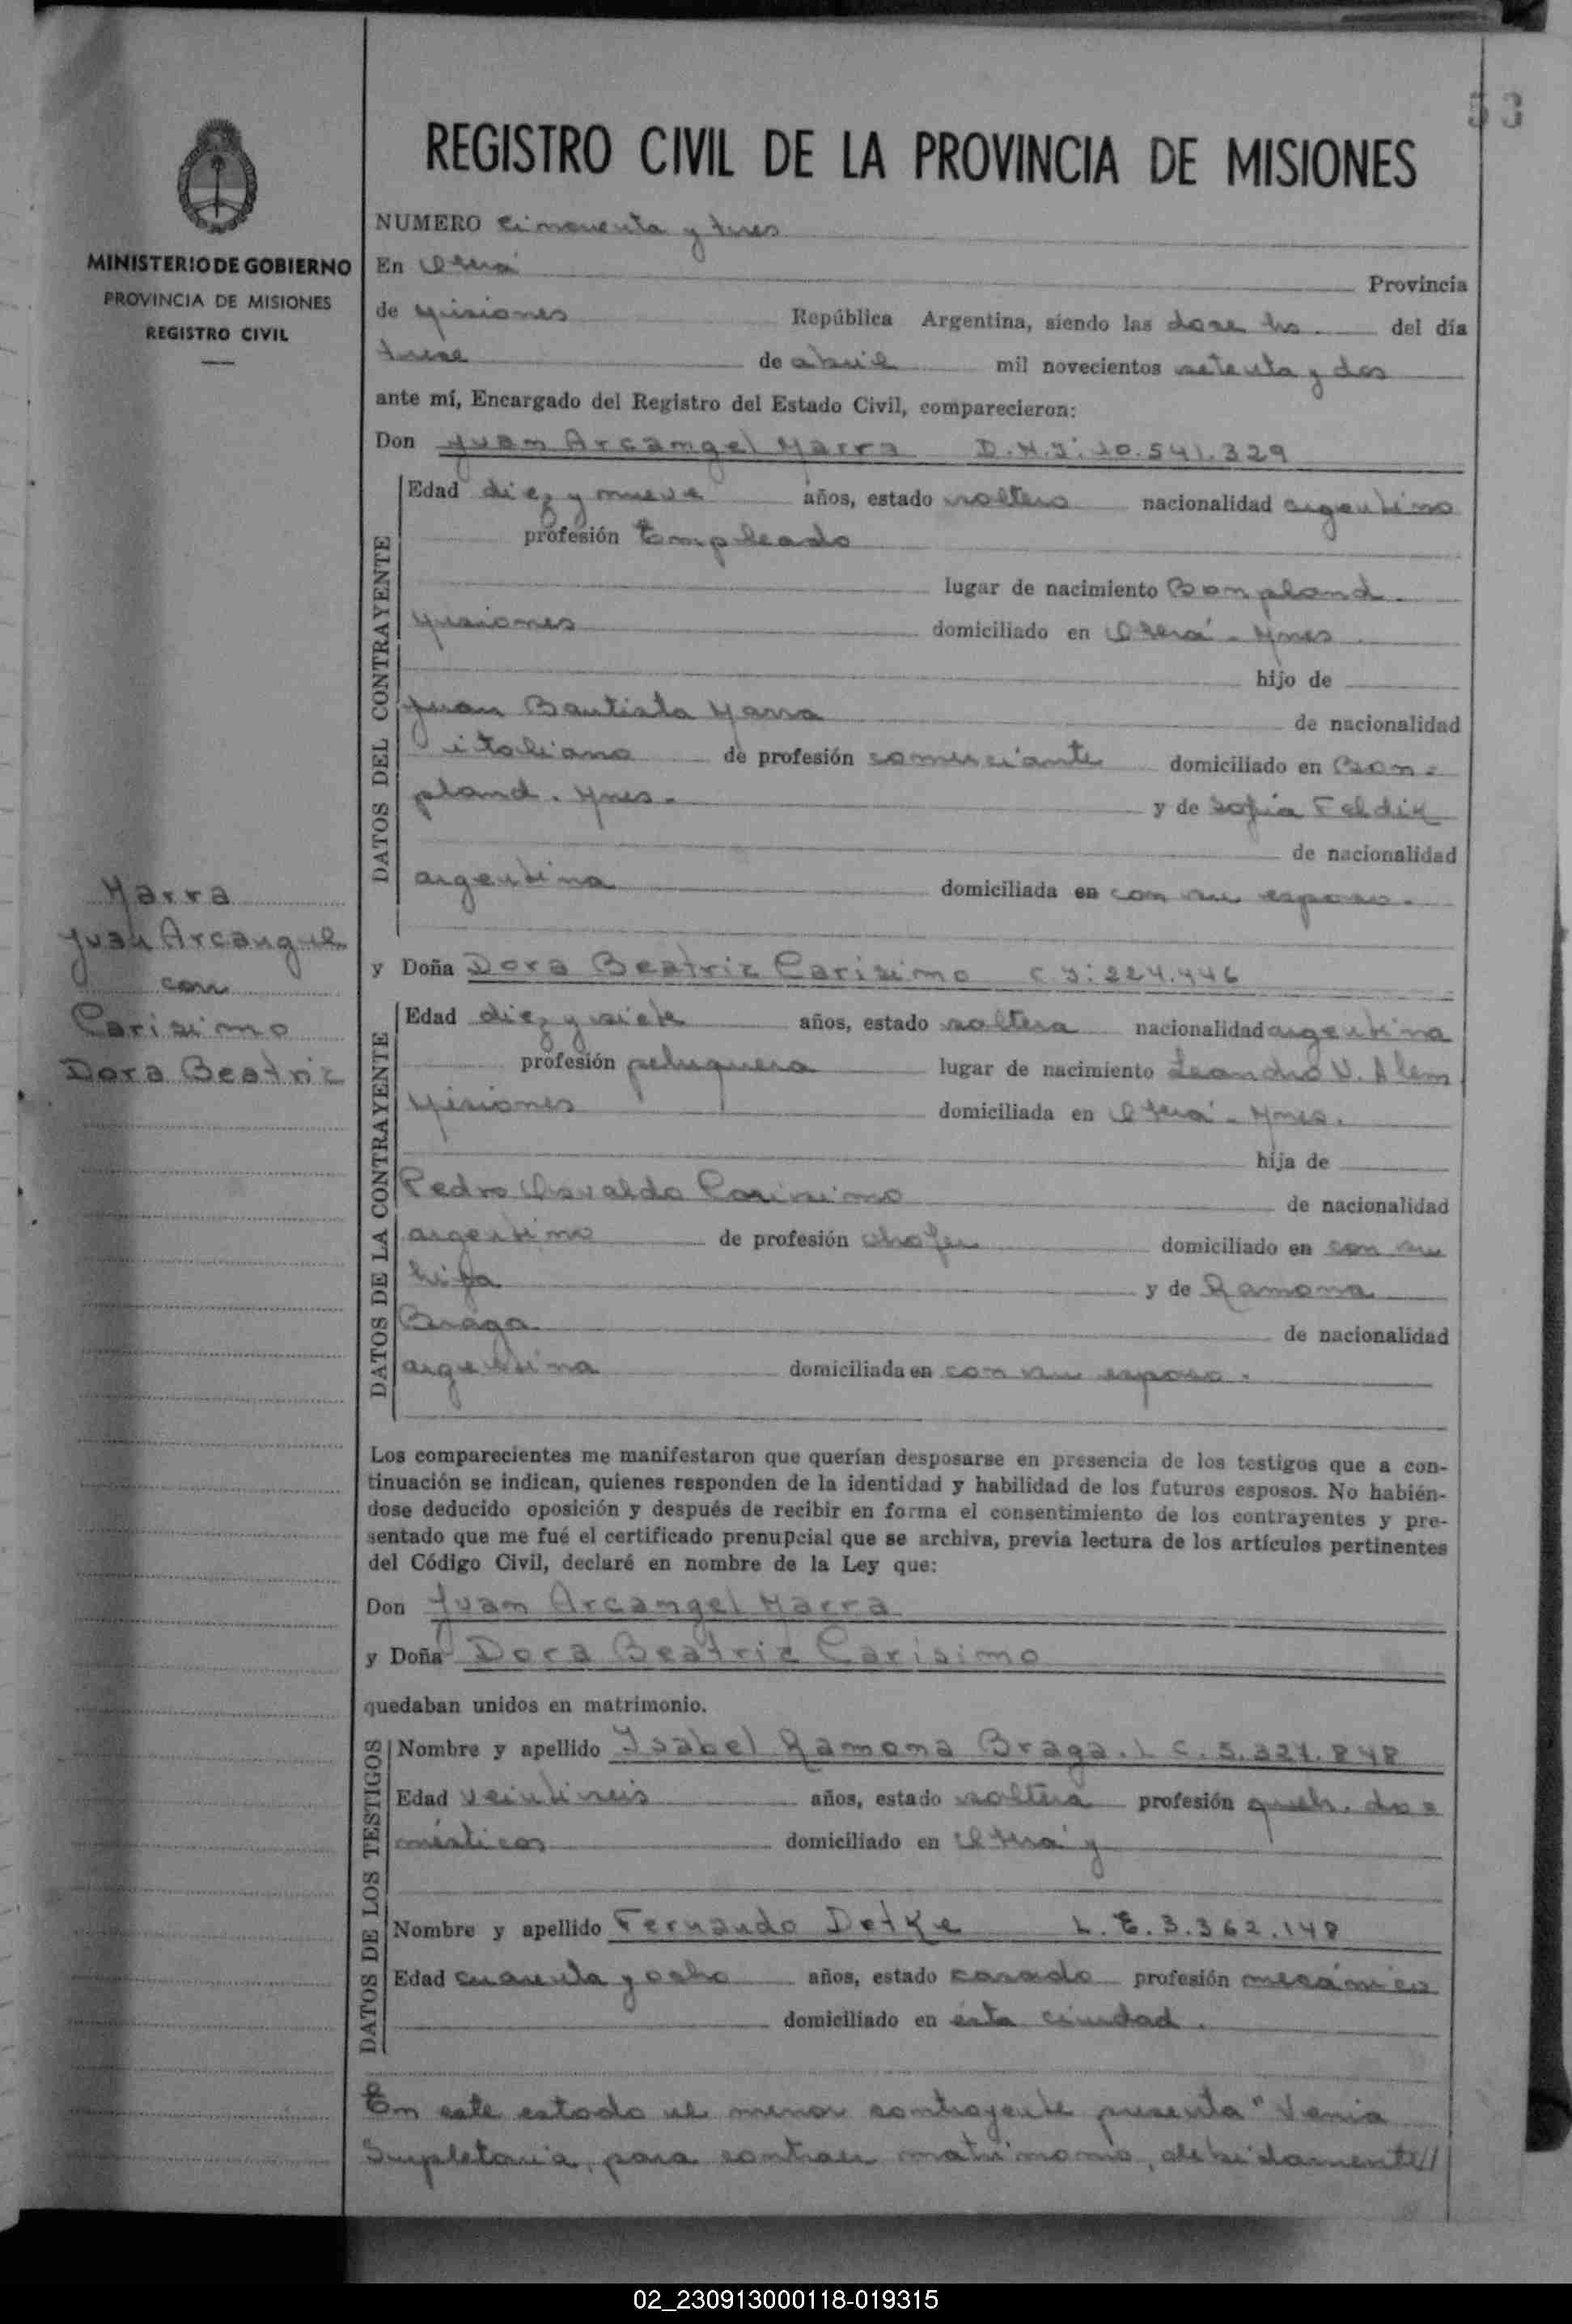 53
REGISTRO CIVIL DE LA PROVINCIA DE MISIONES
MINISTERIO DE GOBIERNO
PROVINCIA DE MISIONES
REGISTRO CIVIL
NUMERO cincuenta y tres
En Oberá Provincia
de Misiones República Argentina, siendo las doce hs. del día
trece de abril mil novecientos setenta y dos
ante mí, Encargado del Registro del Estado Civil, comparecieron:
Don Juan Arcangel Marra D.N.I: 10.541.329
DATOS DEL CONTRAYENTE
Edad diez y nueve años, estado soltero nacionalidad argentino
profesión Empleado
lugar de nacimiento Bonpland.
Misiones domiciliado en Oberá - Mnes.
hijo de
Juan Bautista Marra de nacionalidad
italiano de profesión comerciante domiciliado en Bon=
pland. Mnes. y de Sofia Feldik
de nacionalidad
argentina domiciliada en con su esposo.
Marra
Juan Arcangel
con
Carisimo
Dora Beatriz
y Doña Dora Beatriz Carisimo C.I: 224.446
DATOS DE LA CONTRAYENTE
Edad diez y siete años, estado soltera nacionalidad argentina
profesión peluquera lugar de nacimiento Leandro N. Alem
Misiones domiciliada en Oberá - Mnes.
hija de
Pedro Osvaldo Carisimo de nacionalidad
argentino de profesión chofer domiciliado en con su
hija y de Ramona
Braga de nacionalidad
argentina domiciliada en con su esposo.
Los comparecientes me manifestaron que querían desposarse en presencia de los testigos que a con-
tinuación se indican, quienes responden de la identidad y habilidad de los futuros esposos. No habién-
dose deducido oposición y después de recibir en forma el consentimiento de los contrayentes y pre-
sentado que me fué el certificado prenupcial que se archiva, previa lectura de los artículos pertinentes
del Código Civil, declaré en nombre de la Ley que:
Don Juan Arcangel Marra
y Doña Dora Beatriz Carisimo
quedaban unidos en matrimonio.
DATOS DE LOS TESTIGOS
Nombre y apellido Isabel Ramona Braga. L C. 5.327.848
Edad veintiseis años, estado soltera profesión queh. do=
mésticos domiciliado en Oberá y
Nombre y apellido Fernando Detke L.E. 3.362.148
Edad cuarenta y ocho años, estado casado profesión mecánico
domiciliado en ésta ciudad.
En este estado el menor contrayente presenta "Venia
Supletoria, para contraer matrimonio, debidamente//
02_230913000118-019315